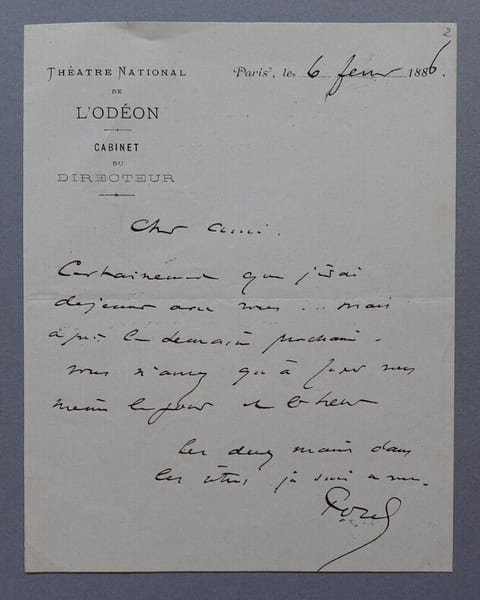 2
THÉATRE NATIONAL
DE
L'ODÉON
CABINET
DU
DIRECTEUR
Paris, le 6 fevr 1886.
Cher ami.
Certainement que j'irai
dejeuner avec vous ... mais
après la semaine prochaine.
vous n'avez qu'à fixer vous
même le jour et l'heure
les deux mains dans
les vôtres je suis a vous.
Porel